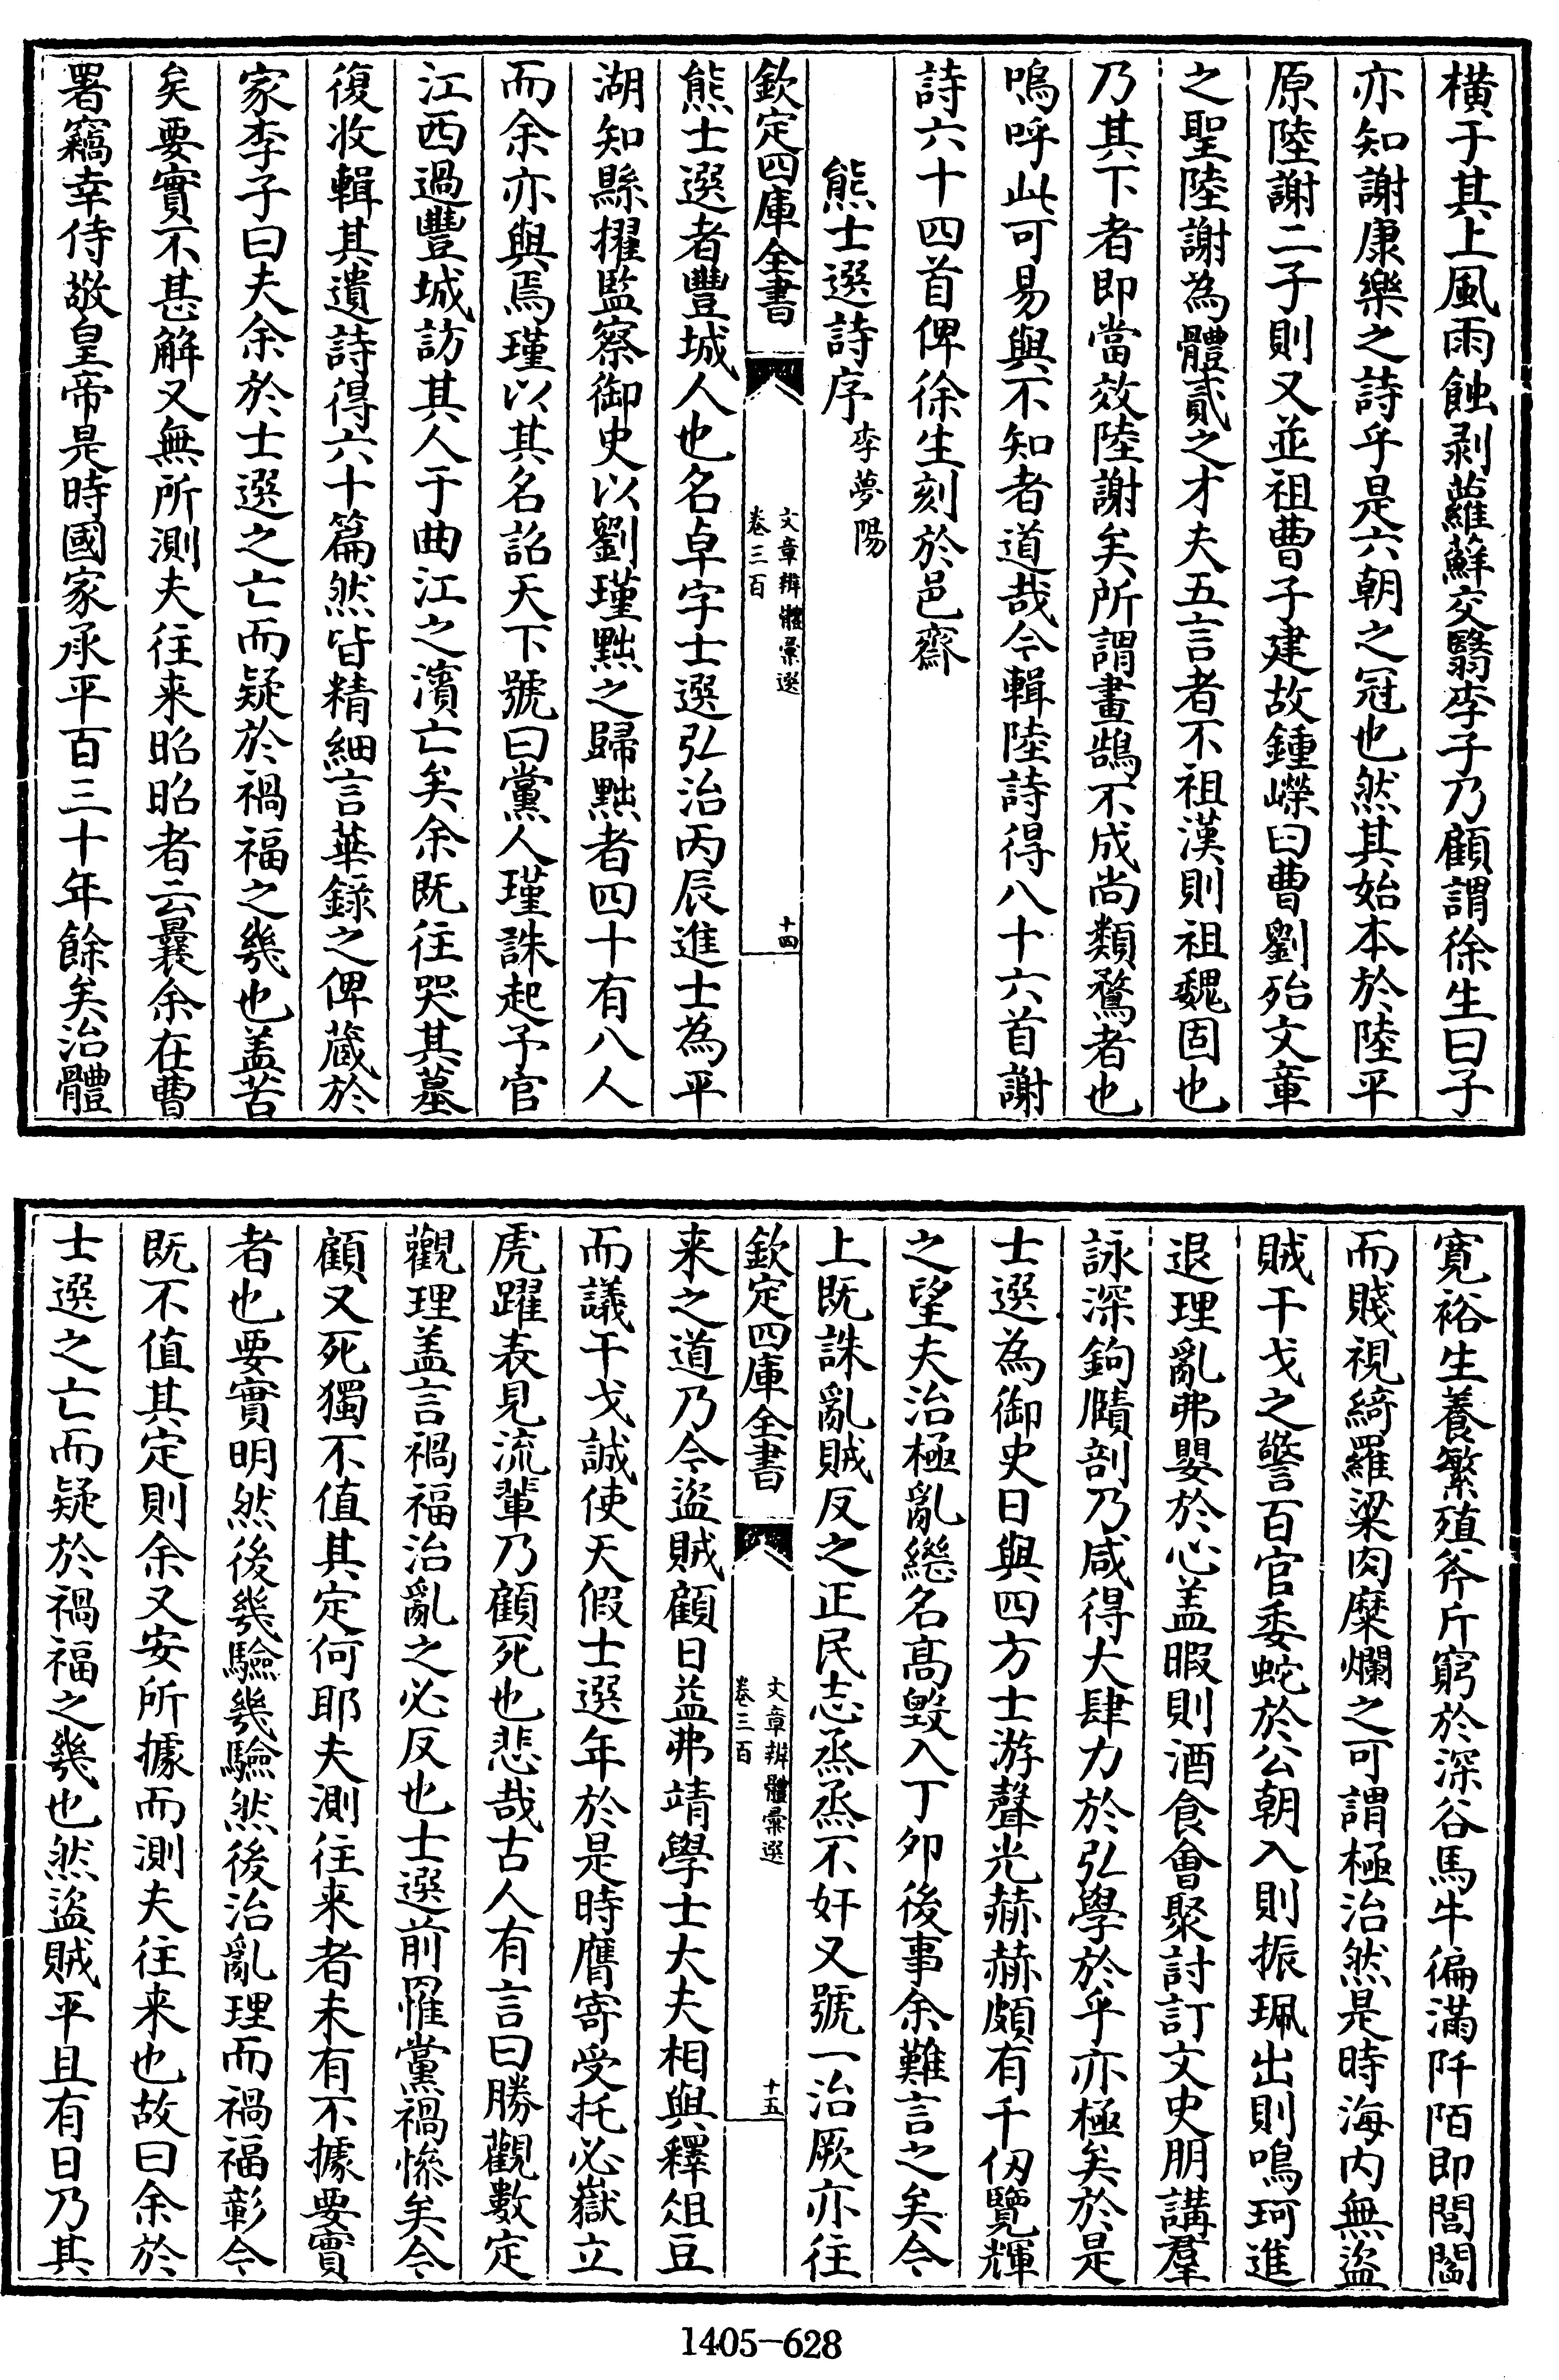 橫于其上風雨蝕剥蘿蘚交翳李子乃顧謂徐生曰子
亦知謝康樂之詩乎是六朝之冠也然其始本於陸平
原陸謝二子則又並祖曹子建故鍾嶸曰曹劉殆文章
之聖陸謝為體貳之才夫五言者不祖漢則祖魏固也
乃其下者即當效陸謝矣所謂畫鵠不成尚類鶩者也
嗚呼此可易與不知者道哉今輯陸詩得八十六首謝
詩六十四首俾徐生刻於邑齋
熊士選詩序李夢陽
欽定四庫全書
文章辨體彙選
卷三百
十四
熊士選者豐城人也名卓字士選弘治丙辰進士為平
湖知縣擢監察御史以劉瑾黜之歸黜者四十有八人
而余亦與焉瑾以其名詔天下號曰黨人瑾誅起予官
江西過豐城訪其人于曲江之濱亡矣余既往哭其墓
復收輯其遺詩得六十篇然皆精細言華錄之俾蔵於
家李子曰夫余於士選之亡而疑於禍福之幾也盖苦
矣要實不甚解又無所測夫往来昭昭者云曩余在曹
署竊幸侍敬皇帝是時國家承平百三十年餘矣治體
寛裕生養繁殖斧斤窮於深谷馬牛徧滿阡陌即閭閻
而賤視綺羅粱肉糜爛之可謂極治然是時海内無盗
賊干戈之警百官委蛇於公朝入則振珮出則鳴珂進
退理亂弗嬰於心盖暇則酒食會聚討訂文史朋講羣
詠深鉤賾剖乃咸得大肆力於弘學於乎亦極矣於是
士選為御史日與四方士游聲光赫赫頗有千仭覽輝
之望夫治極亂繼名髙毁入丁夘後事余難言之矣今
上既誅亂賊反之正民志烝烝不奸又號一治厥亦往
欽定四庫全書
文章辨體彙選
卷三百
十五
来之道乃今盗賊顧日益弗靖學士大夫相與釋俎豆
而議干戈誠使天假士選年於是時膺寄受托必嶽立
虎躍表見流輩乃顧死也悲哉古人有言曰勝觀數定
觀理盖言禍福治亂之必反也士選前罹黨禍慘矣今
顧又死獨不值其定何耶夫測往来者未有不據要實
者也要實明然後幾驗幾驗然後治亂理而禍福彰今
既不值其定則余又安所據而測夫往来也故曰余於
士選之亡而疑於禍福之幾也然盗賊平且有日乃其
1405-628